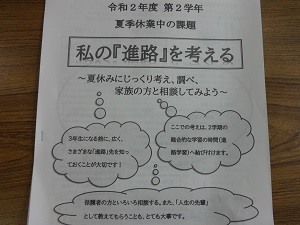 令和２年度 第２学年
夏季休業中の課題
私の『進路』を考える
～夏休みにじっくり考え、調べ、
家族の方と相談してみよう～
３年生になる前に、広く、
さまざまな「進路」先を知っ
ておくことが大切です！
ここでの考えは、２学期の
総合的な学習の時間（進
路学習）へ結び付けます。
保護者の方といろいろ相談する。また、「人生の先輩」
として教えてもらうことも、とても大事です。